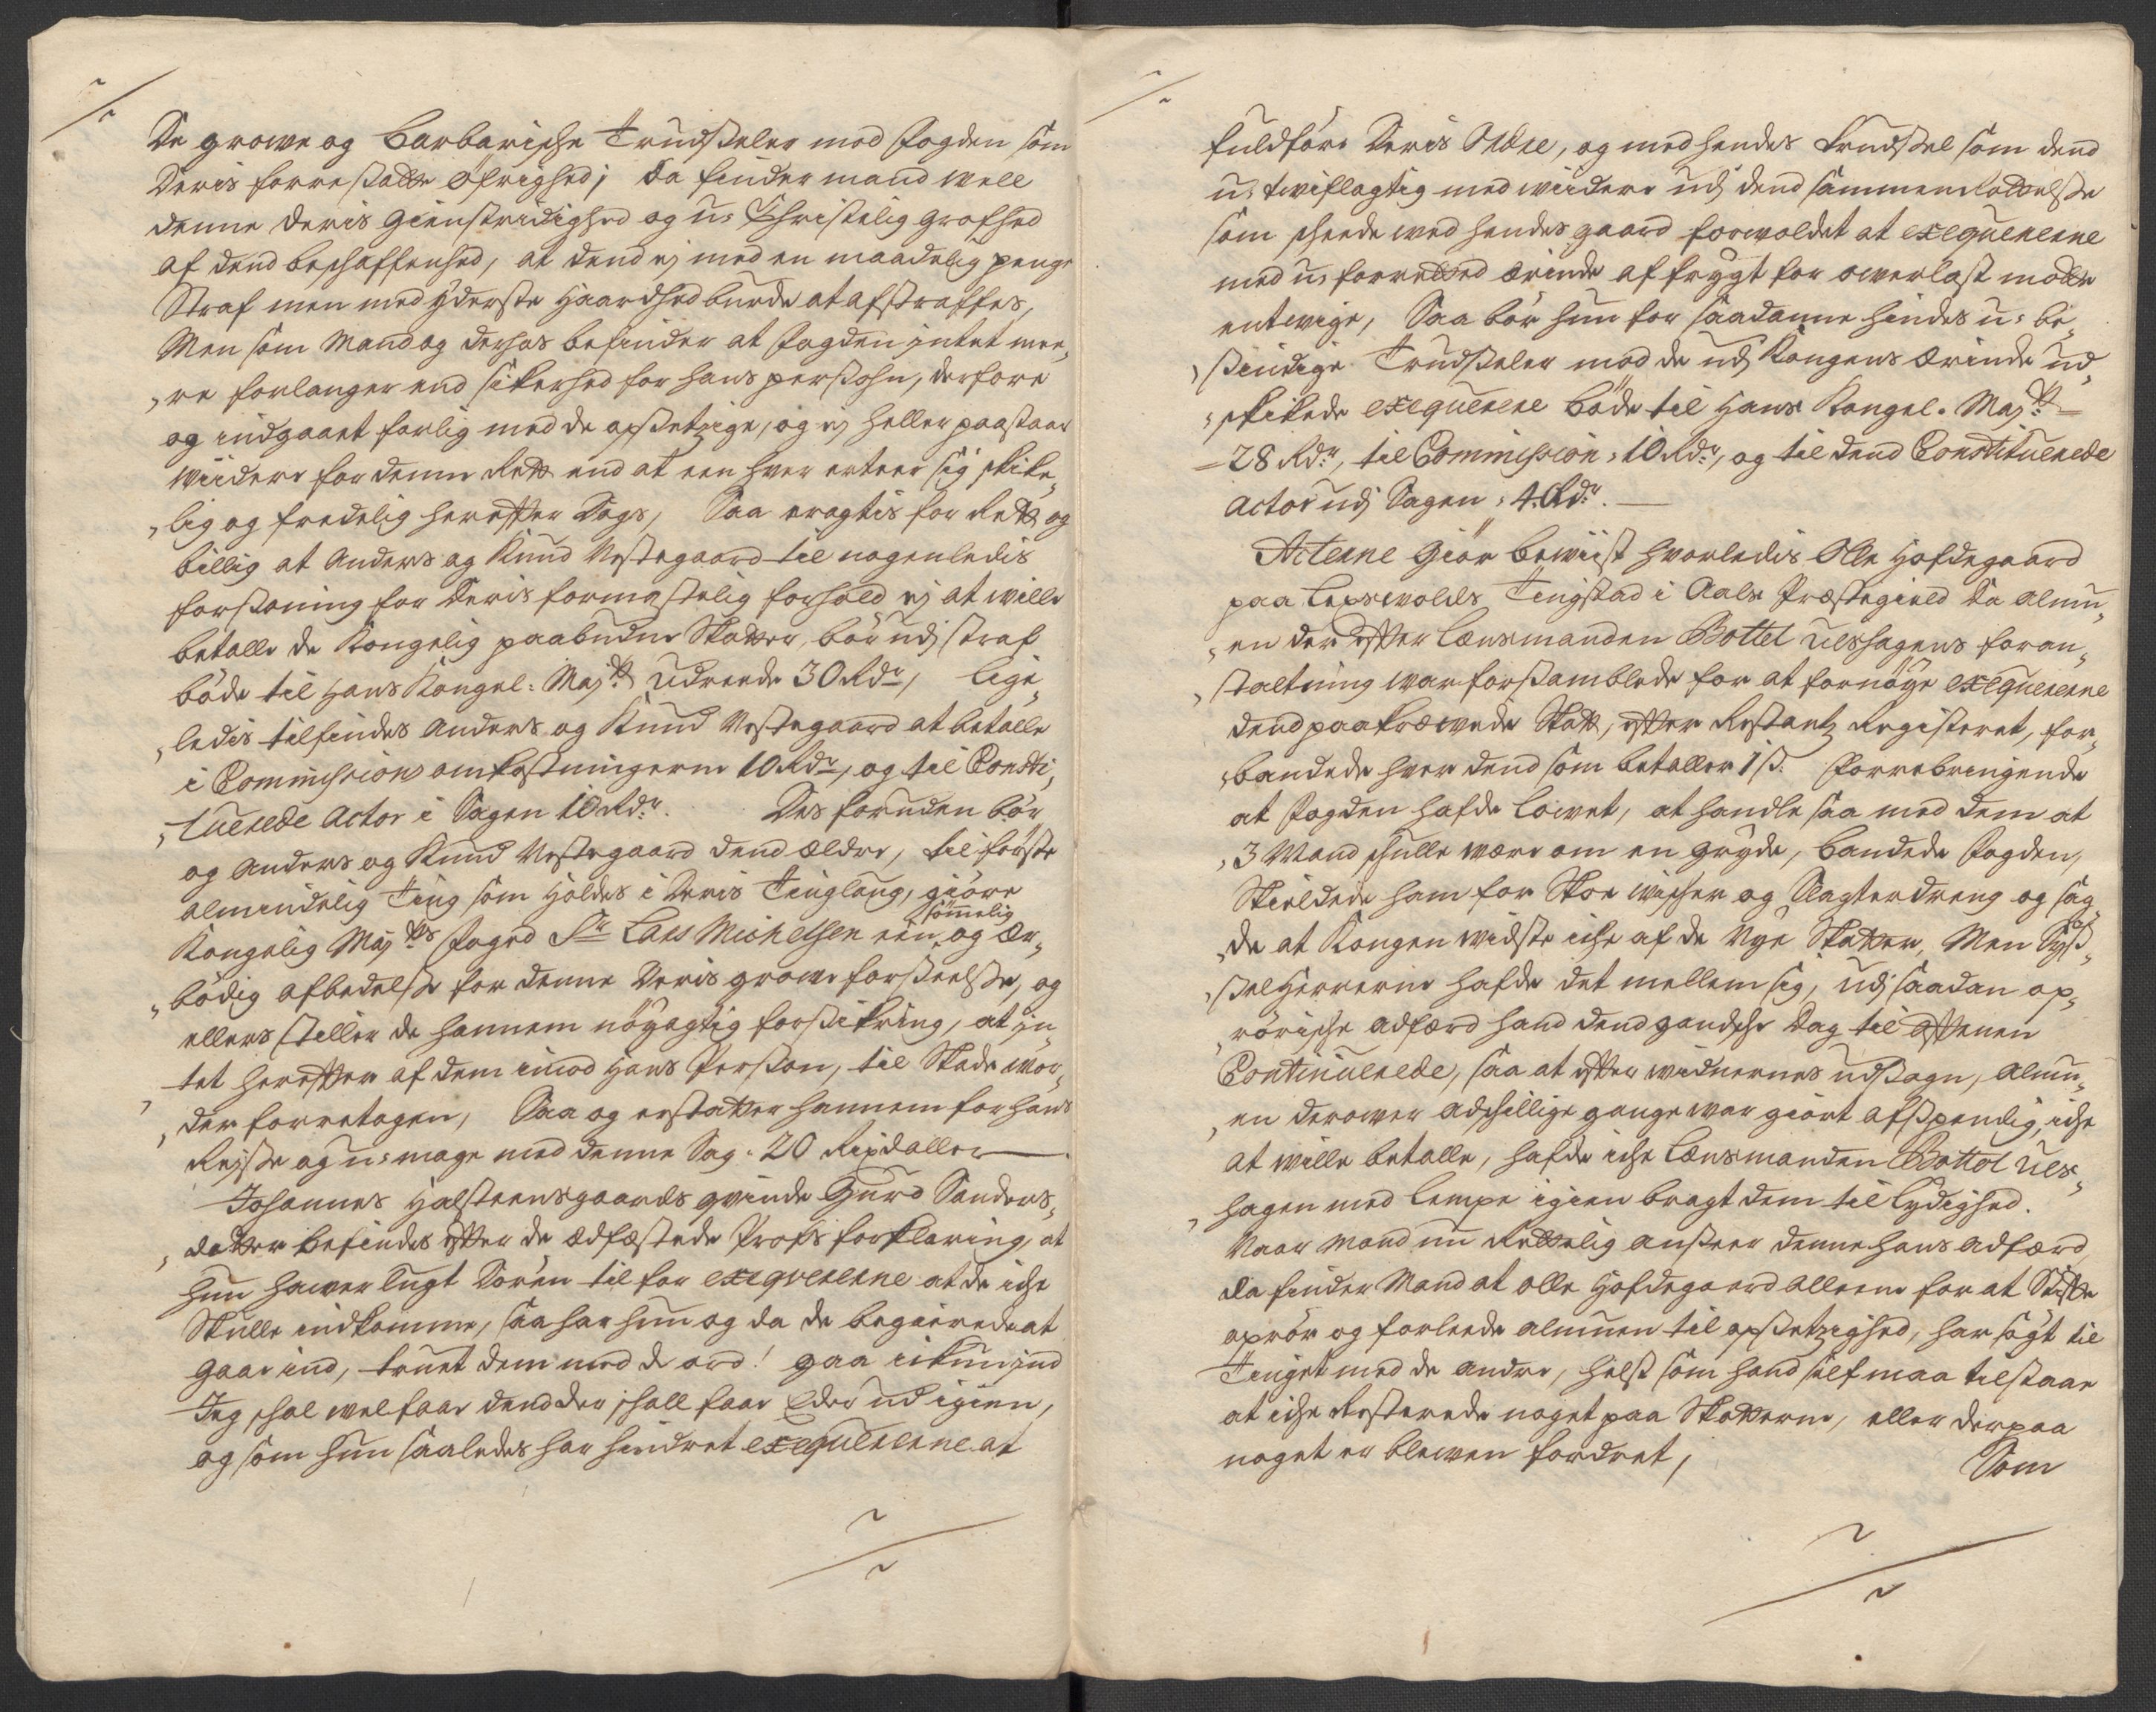 De growe og Barbarische Trudsteler mod Fogden som
Deris forrestatte Øfrighed; da finder mand well
denne deris Gienstridighed og u-Christelig Grofhed
af dend beschaffenhed, at dend ej med en maadelig penge
Straf men med yderste Haardhed burde at afstraffes,
Men som Mand og derhos befinder at Fogden intet mee„
„re forlanger end sikerhed for hans persohn, derfore
og indgaaet forlig med de opsetzige, og ej heller paastaar
wiidere for denne Rett end at een hver erteer sig skike„
„lig og fredelig herefter Dags, Saa eragtis for Rett og
billig at Anders og Knud Westegaard til nogenledis
forsoning for Deris formastelig forhold ej at wille
betalle de Kongelig paabudne Skatter, bør udj straf
bøde til Hans Kongel: Maytt Udreede 30 Rdr, lige„
„ledis tilfindes Anders og Knud Westegaard at betalle
i Commissions omkostningerne 10 Rdr, og til Consti„
„tuerede Actor i Sagen 10 Rdr. Des foruden bør
og Anders og Knud Westegaard dend ældre, til første
almindelig Ting som holdes i Deris Tinglaug, giøre
Kongelig Maytts Foged Sr Lars Michelsen een sømmelig og ær„
„bødig afbedelse for denne Deris growe forseelse, og
ellers stiller de hannem nøyagtig forsikring, at in„
„tet herefter af dem imod Hans Person, til Skade wor„
„der forretagen, Saa og erstatter hannem for hans
Rejse og u-mage med denne Sag: 20 Rixdaller
Johannes Halsteensgaards qvinde Gurd Sanders„
„datter befindes efter de ædfæstede Profs forklaring, at
hun hawer lugt Døren til for exeqvererne at de iche
Skulle indkomme, saa har hun og da de begierede at
gaae ind, truet dem med de ord! gaa ikun ind
Jeg schal wel faae dend der schall faae Eder ud igien,
og som hun saaledes har hindret exequererne at
fuldføre Deris Ordre, og med hendes trudsel som dend
u-twiflagtig med wiidere udj dend sammenRottelse
som scheede wed hendes gaard forwoldet at exequererne
med u-forretted ærinde af frygt for owerlast motte
entwige, Saa bør hun for saadanne hindes u-be„
„sindige Trudsteler mod de udj Kongens ærinde ud„
„skikede exequerere bøde til Hans Kongel. Maytt
28 Rdr, til Commission: 10 Rdr, og til dend Constituerede
Actor udj Sagen: 4 Rdr.
Acterne Giør bewiist hvorledis Olle Hofdegaard
paa Leqswolds Tingstad i Aals Præstegield da almu„
„en der efter Lænsmanden Bottel Uleshagens foran„
„staltning war forsamblede for at fornøye exequererne
dend paakræwede Skatt, efter Restantz Registeret, for„
„bandede hver dend som betaller 1 ß. Forrebringende
at Fogden hafde lowet, at handle saa med dem at
3 Mand schulle wære om en gryde, bandede Fogden,
Skieldede ham for Skoe wischer og Slagterdreng og sag„
„de at Kongen widste iche af de Nye Skatter, Men Sys„
„selHerrerne hafde det mellem sig, udj saadan op„
„rørische adfærd hand dend gandsche Dag til Aftenen
Continuerede, saa at efter widnernes udsagn, almu„
„en derower adschillige gange war giort afspendig, iche
at wille betalle, hafde iche Lænsmanden Bottol Ules„
„hagen med lempe igien bragt dem til lydighed.
Naar Mand nu Rettelig anseer denne hans adfærd
da finder Mand at Olle Hofdegaard alleene for at Stifte
oprør og forleede almuen til opsetzighed, har søgt til
Tinget med de andre, helst som hand self maa tilstaae
at iche Resterede noget paa Skatterne, eller derpaa
noget er blewen fordret,
Som